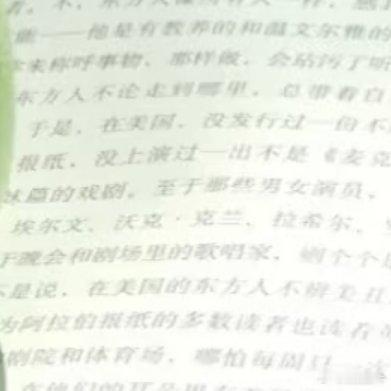 能——他是有教养的和温文尔雅的
来称呼事物，那样做，会玷污了听
东方人不论走到哪里，总带着自
于是，在美国，没发行过一份不
报纸，没上演过一出不是《麦克
泳篇的戏剧。至于那些男女演员，
埃尔文、沃克·克兰、拉希尔、
于晚会和剧场里的歌唱家，则个个
不是说，在美国的东方人不辨美丑
为阿拉伯报纸的多数读者也读着
剧院和体育场，哪怕每周只